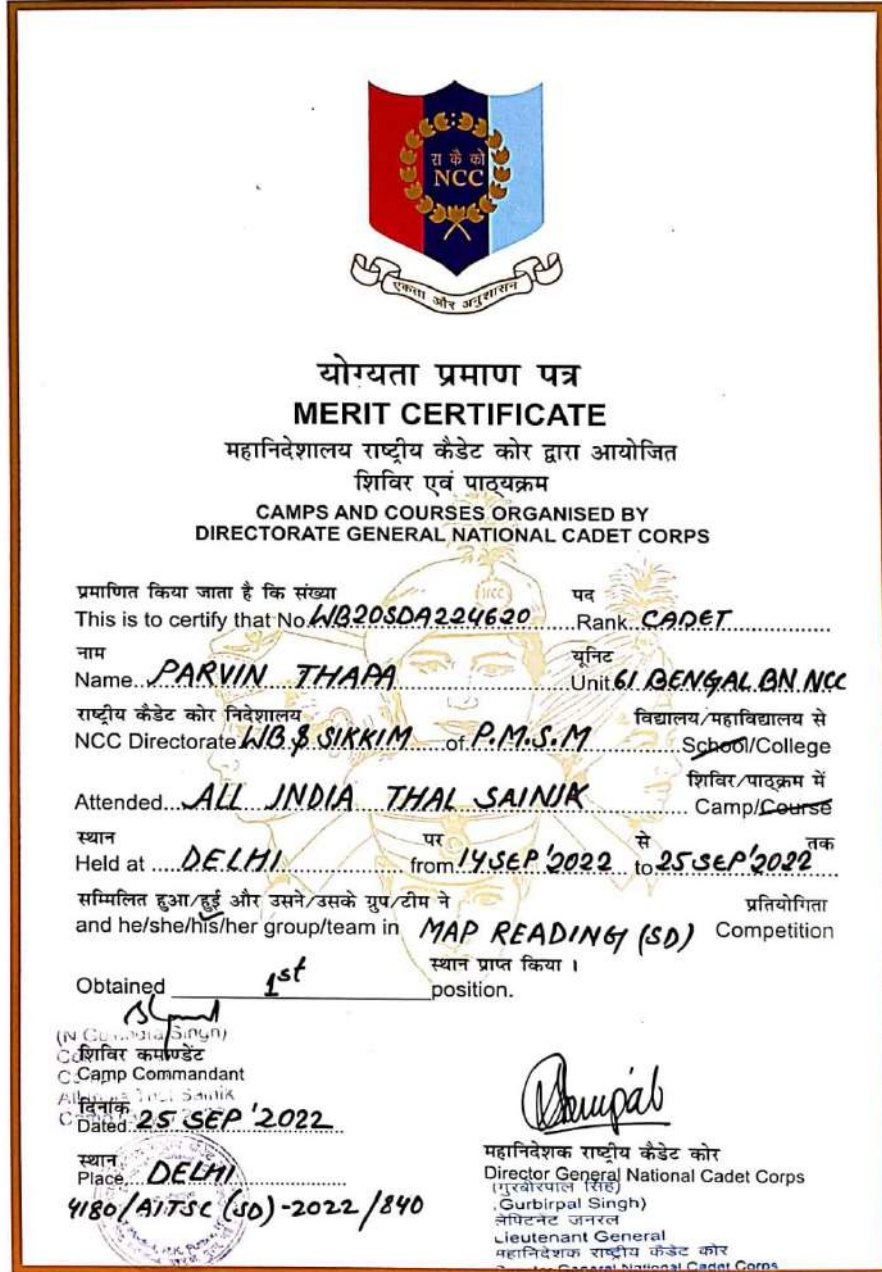 रा कै को
NCC
एकता और अनुशासन
योग्यता प्रमाण पत्र
MERIT CERTIFICATE
महानिदेशालय राष्ट्रीय कैडेट कोर द्वारा आयोजित
शिविर एवं पाठ्यक्रम
CAMPS AND COURSES ORGANISED BY
DIRECTORATE GENERAL NATIONAL CADET CORPS
प्रमाणित किया जाता है कि संख्या पद
This is to certify that No. WB20SDA224620 Rank. CADET
नाम यूनिट
Name.. PARVIN THAPA Unit 61 BENGAL BN NCC
राष्ट्रीय कैडेट कोर निदेशालय विद्यालय/महाविद्यालय से
NCC Directorate WB & SIKKIM of P.M.S.M School/College
शिविर/पाठ्क्रम में
Attended... ALL INDIA THAL SAINIK Camp/Course
स्थान पर से तक
Held at DELHI from 14 SEP'2022 to 25 SEP'2022
सम्मिलित हुआ/हुई और उसने/उसके ग्रुप/टीम ने प्रतियोगिता
and he/she/his/her group/team in MAP READING (SD) Competition
स्थान प्राप्त किया ।
Obtained 1st position.
शिविर कमाण्डेंट
Camp Commandant
दिनांक
Dated: 25 SEP '2022
स्थान
Place... DELHI
4180/AITSC (SD)-2022/840
महानिदेशक राष्ट्रीय कैडेट कोर
Director General National Cadet Corps
(गुरबीरपाल सिंह)
Gurbirpal Singh)
लेफ्टिनेंट जनरल
Lieutenant General
महानिदेशक राष्ट्रीय कैडेट कोर
Director General National Cadet Corps